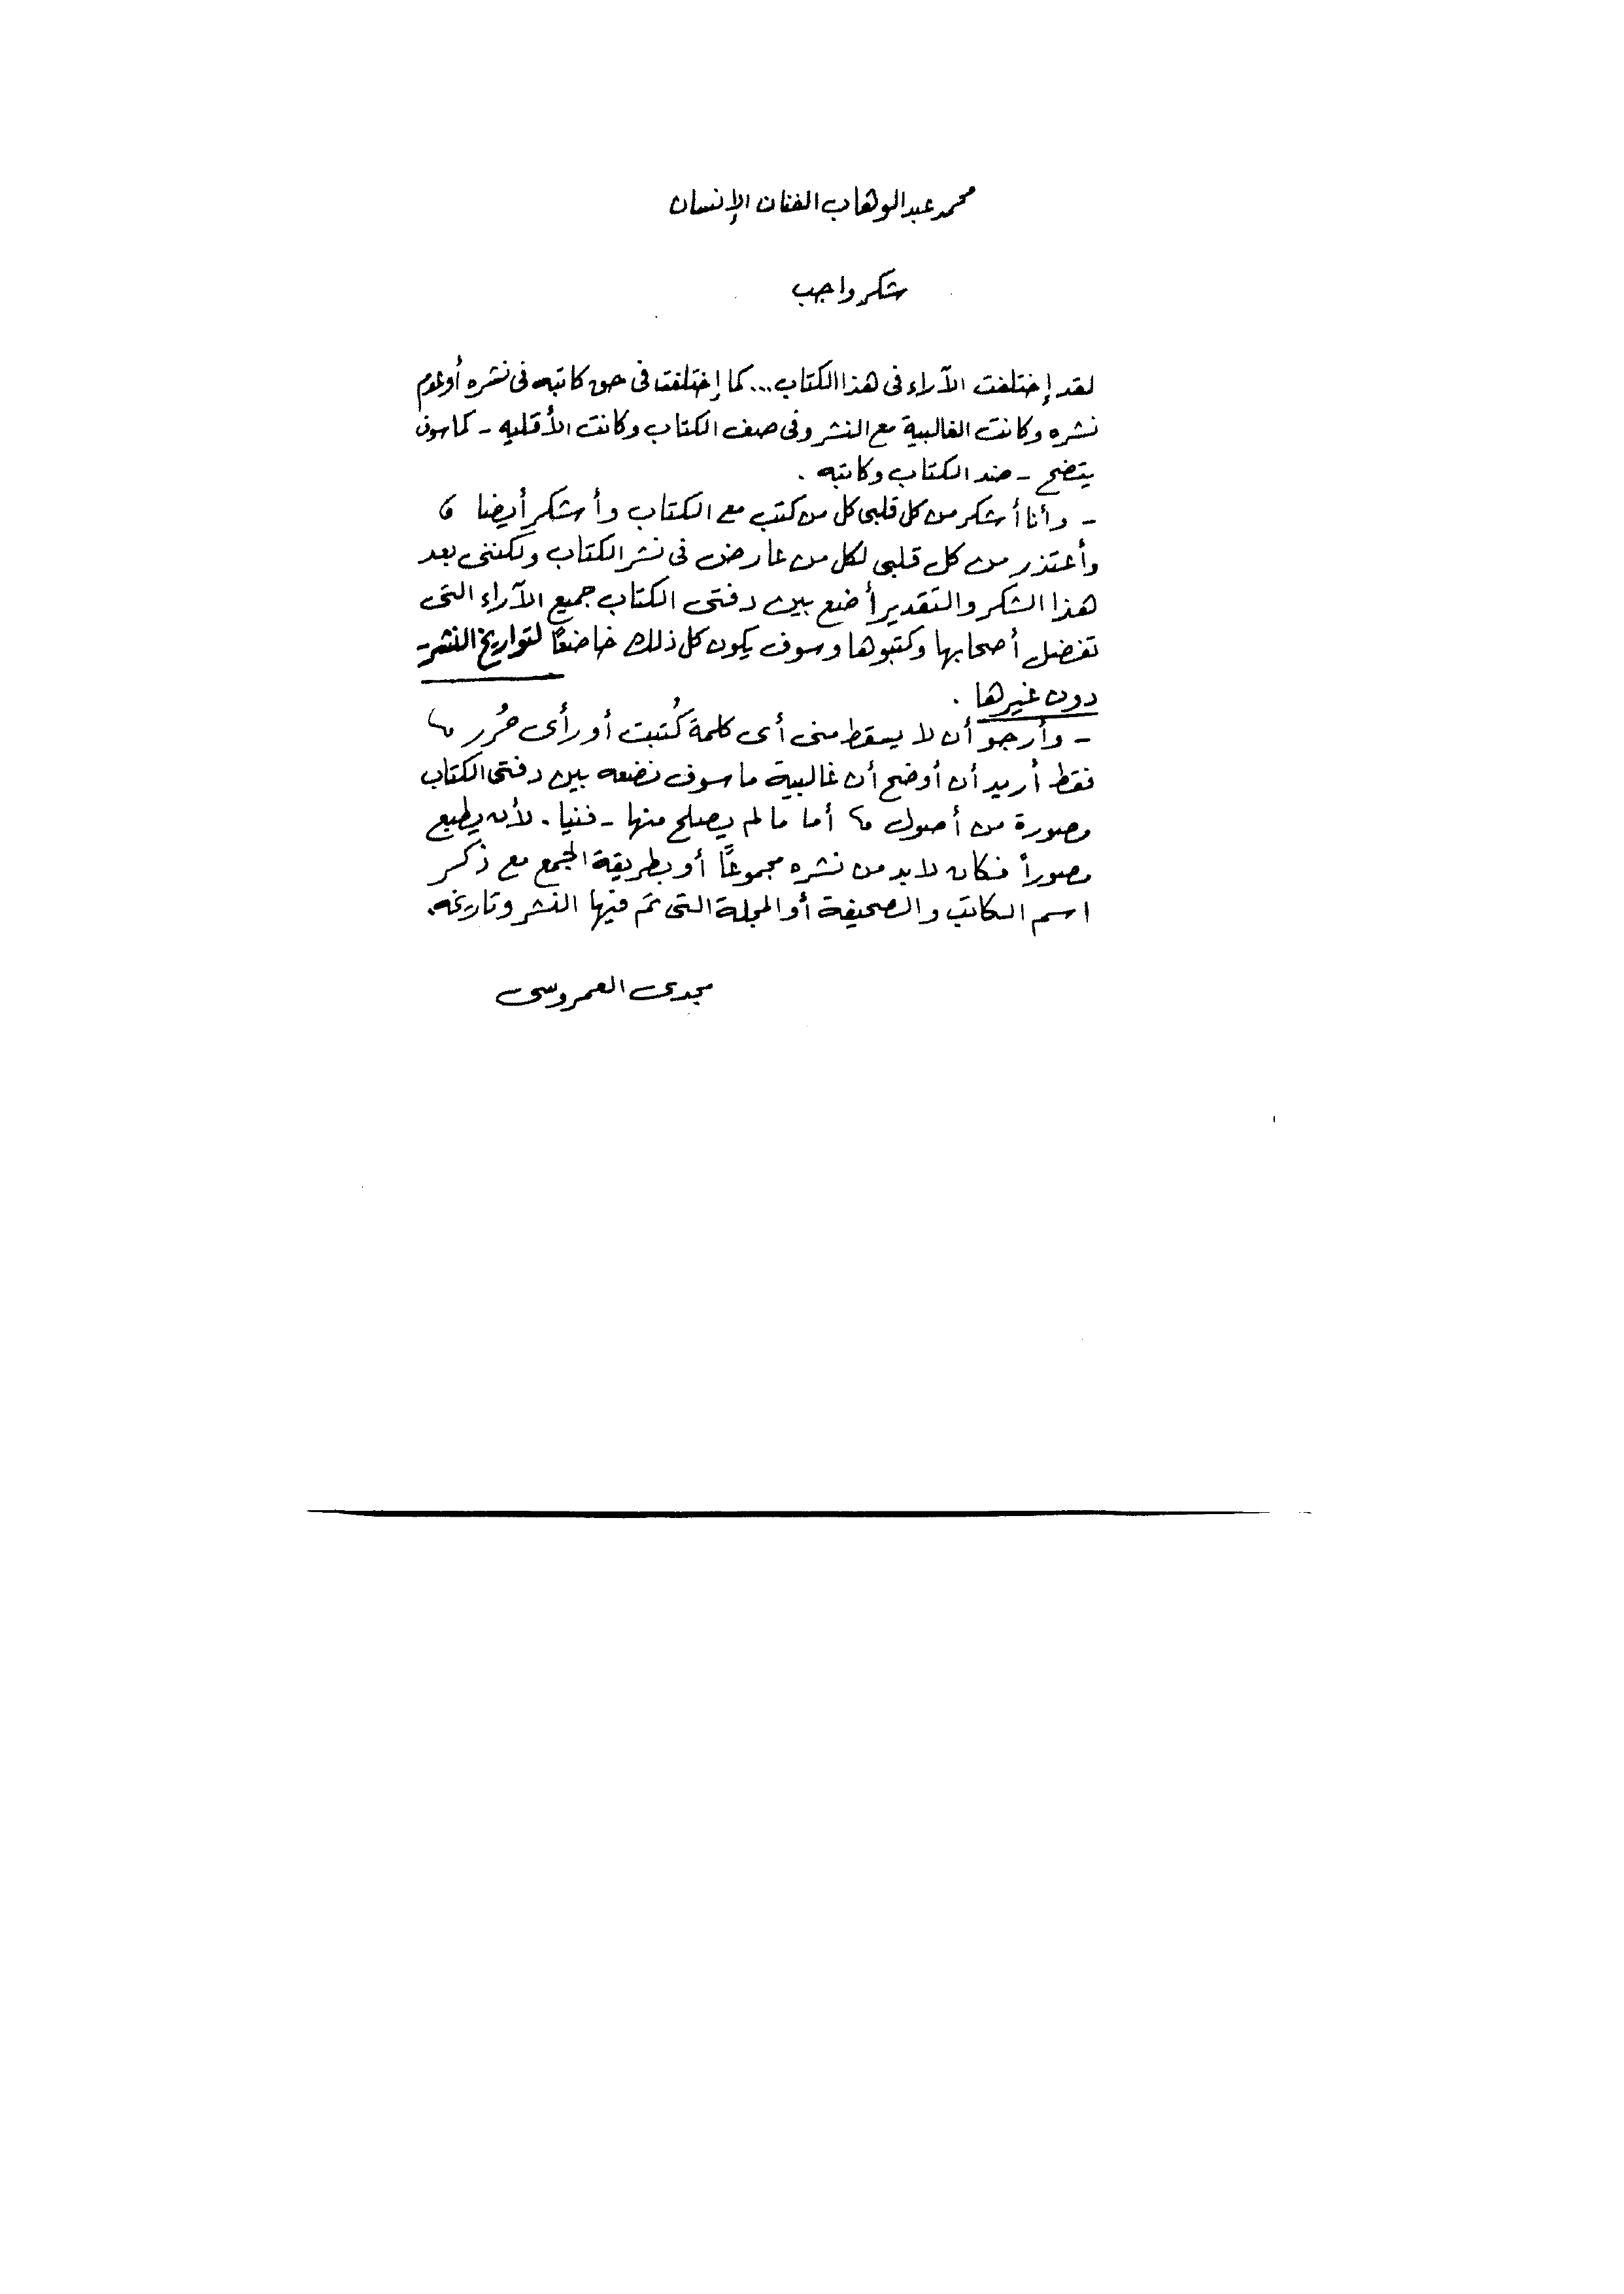 محمد عبد الوهاب الفنان الإنسان
شكر واجب
لقد إختلفت الآراء فى هذا الكتاب... كما إختلفت فى حق كاتبه فى نشره أو عدم
نشره وكانت الغالبية مع النشر وفى صف الكتاب وكانت الأقليه - كما سوف
يتضح - ضد الكتاب وكاتبه .
- وأنا أشكر من كل قلبى كل من كتب مع الكتاب وأشكر أيضا ،
وأعتذر من كل قلبى لكل من عارض فى نشر الكتاب ولكننى بعد
هذا الشكر والتقدير أضع بين دفتى الكتاب جميع الآراء التى
تفضل أصحابها وكتبوها وسوف يكون كل ذلك خاضعًا لتواريخ النشر -
دون غيرها .
- وأرجو أن لا يسقط منى أى كلمة كُتبت أو رأى حُرر ،
فقط أريد أن أوضح أن غالبية ما سوف نضعه بين دفتى الكتاب
مصورة من أصول ، أما ما لم يصلح منها - فنيا . لأن يطبع
مصوراً فكان لابد من نشره مجموعًا أو بطريقة الجمع مع ذكر
اسم الكاتب والصحيفة أو المجلة التى تم فيها النشر وتاريخه.
مجدى العمروسى